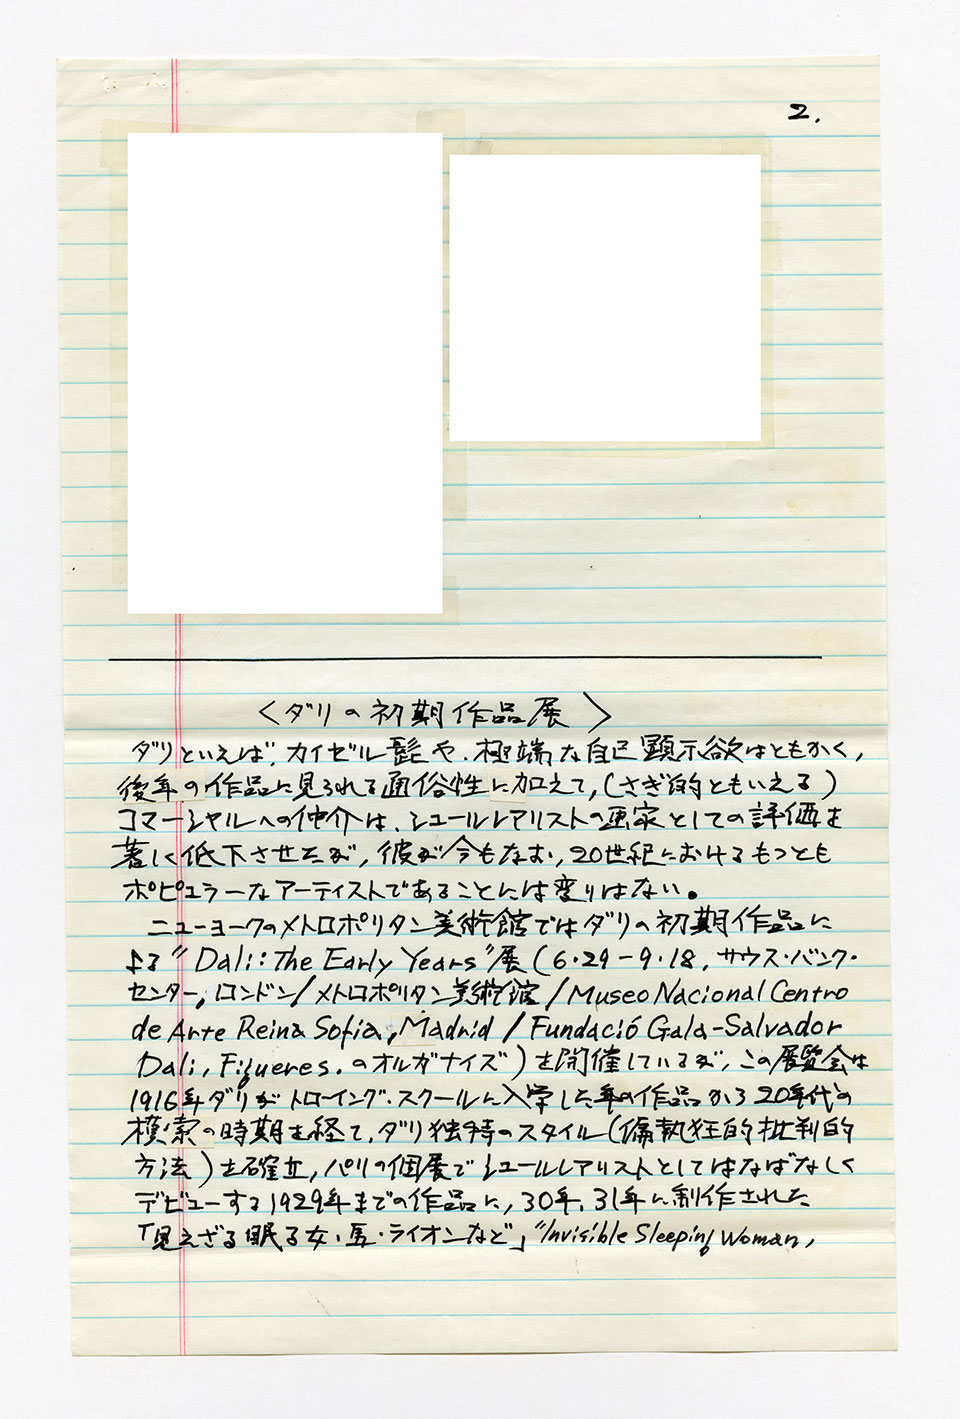 2.
〈ダリの初期作品展〉
ダリといえば、カイゼル髭や、極端な自己顕示欲はともかく,
後年の作品に見られる通俗性に加えて,(さぎ的ともいえる)
コマーシャルへの仲介は、シュールレアリストの画家としての評価を
著しく低下させたが,彼が今もなお,20世紀におけるもっとも
ポピュラーなアーティストであることには変りはない。
ニューヨークのメトロポリタン美術館ではダリの初期作品に
よる"Dali: The Early Years"展(6・29-9・18,サウス・バンク・
センター,ロンドン/メトロポリタン美術館/Museo Nacional Centro
de Arte Reina Sofia, Madrid / Fundació Gala-Salvador
Dali, Figueres.のオルガナイズ)を開催しているが,この展覧会は
1916年ダリがトローイング・スクールに入学した年の作品から20年代の
模索の時期を経て,ダリ独特のスタイル(偏執狂的批判的
方法)を確立,パリの個展でシュールレアリストとしてはなばなしく
デビューする1929年までの作品に,30年,31年に制作された
「見えざる眠る女・馬・ライオンなど」"Invisible Sleeping Woman,